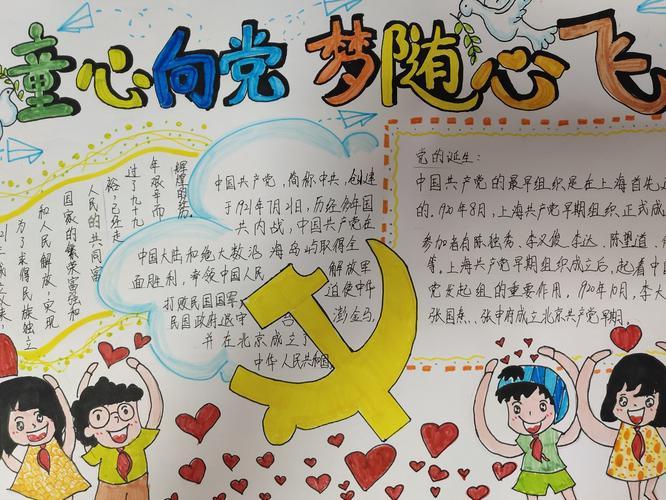 童心向党 梦随心飞
年成立以来,
为了求得民族独立
和人民解放,实现
国家的繁荣富强和
人民的共同富
裕,已经走
过了九十九
年艰辛而
辉煌的历
中国共产党,简称中共,创建
于1921年7月21日,历经国
共内战,中国共产党在
中国大陆和绝大数沿海岛屿取得全
面胜利,率领中国人民 解放军
打败民国国军, 迫使中华
民国政府退守 澎金马,
并在北京成立了
中华人民共和国
党的诞生:
中国共产党的最早组织是在上海首先
的。1920年8月,上海共产党早期组织正式成
参加者有陈独秀、李汉俊、李达、陈望道、
等。上海共产党早期组织成立后,起着中
党发起组的重要作用。1920年10月,李大
张国焘、张申府成立北京共产党早期。